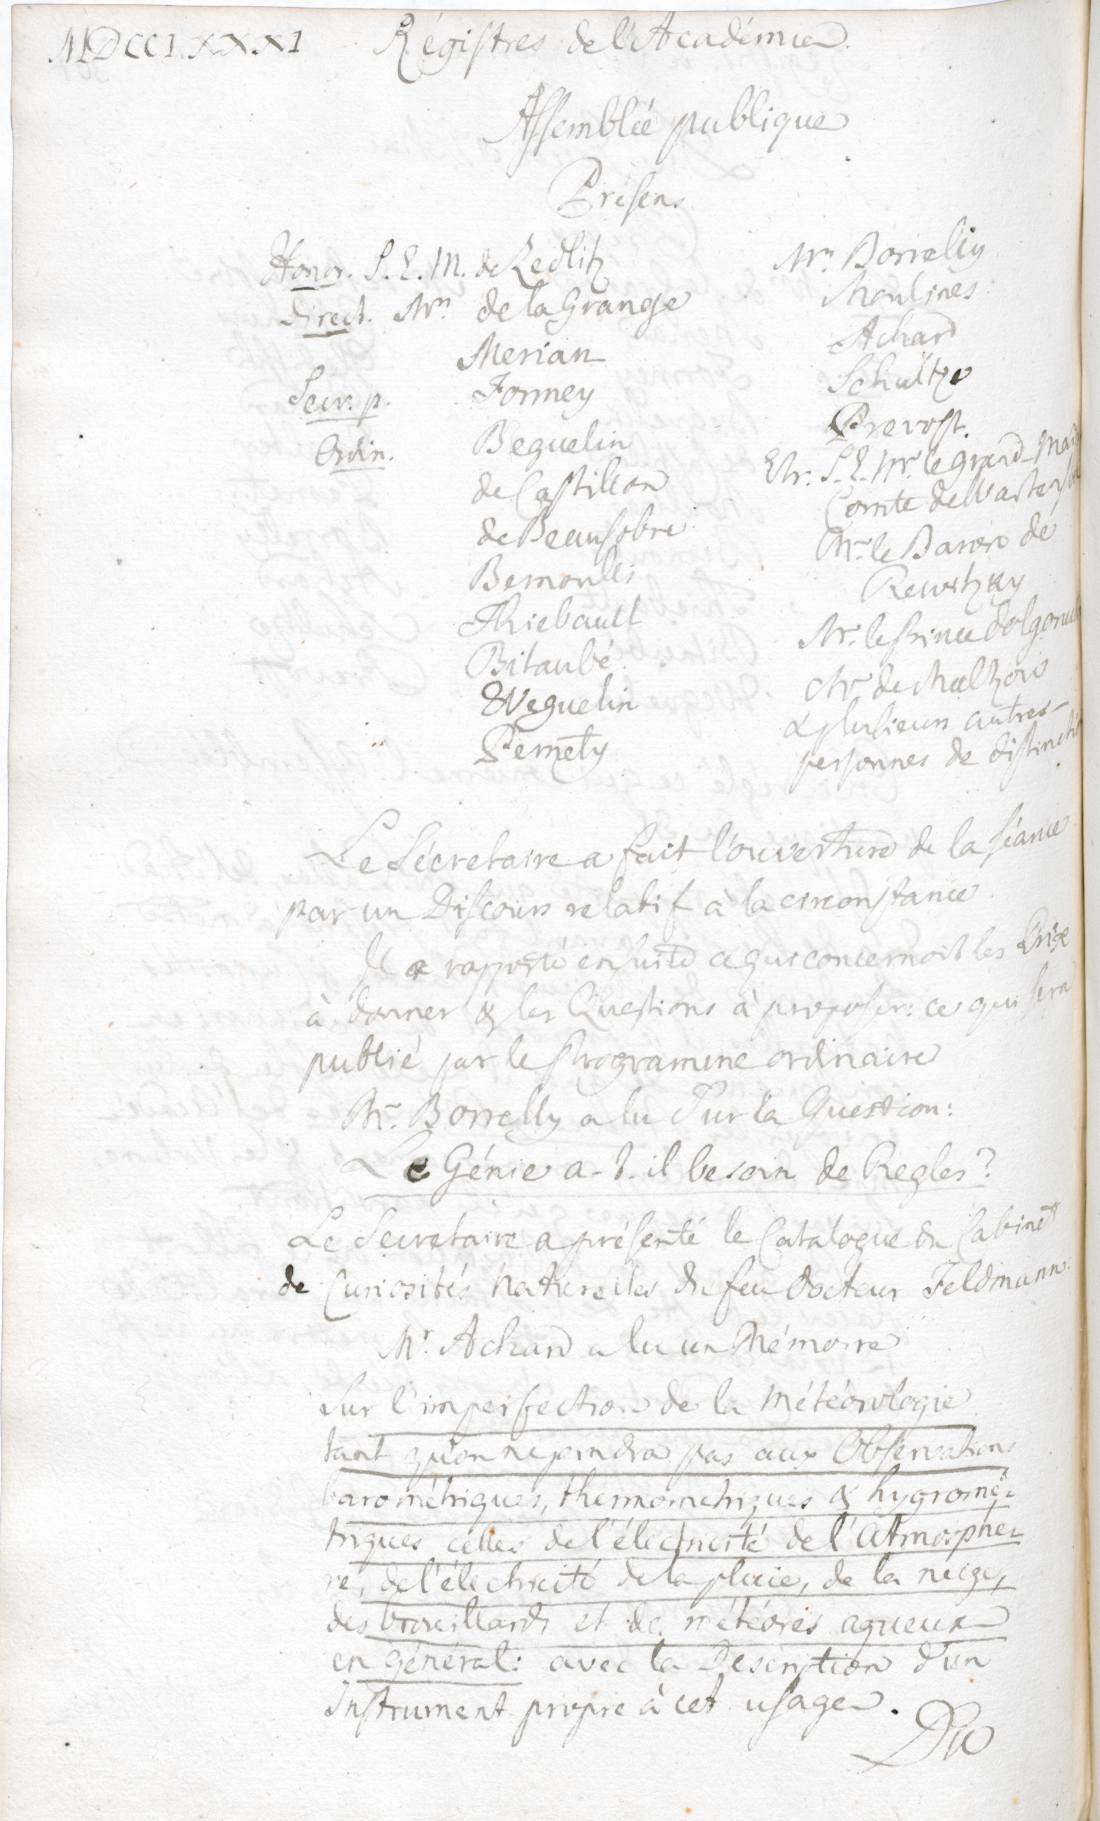 MDCCLXXXI Régistres de l'Académie
Assemblée publique
Présens
Honor. S. E. M. de Zedlitz
Direct. Mrs de la Grange
Merian
Secr. p. Formey
Ordin. Beguelin
de Castillon
de Beausobre
Bernoulli
Thiebault
Bitaubé
Weguelin
Pernety
Mrs Borrelly
Moulines
Achard
Schultze
Prevost.
Etr. S. E. Mr. le grand-Ma
Comte de
Mr. le Baron de
Rewitzky
Mr. le Prince Dolgoruk
Mr. de
& plusieurs autres
personnes de distincti
Le Sécretaire a fait l'ouverture de la séance
par un Discours relatif à la circonstance
Il a rapporté ensuite ce qui concernoit les Prix
à donner & les Questions à proposer: ce qui sera
publié par le Programme ordinaire
Mr. Borrelly a lu sur la Question:
Le Génie a-t-il besoin de Regles?
Le Secretaire a présenté le Catalogue du Cabinet
de Curiosités naturelles du feu Docteur Feldmann.
Mr. Achard a lu un Mémoire
Sur l'imperfection de la Météorologie
tant qu'on ne joindra pas aux Observations
barométriques, thermometriques & hygromé-
triques celles de l'électricité de l'Atmosphe-
re, de l'électricité de la pluie, de la neige,
des brouillards et de météores aqueux
en général: avec la Description d'un
Instrument propre à cet usage.
Du